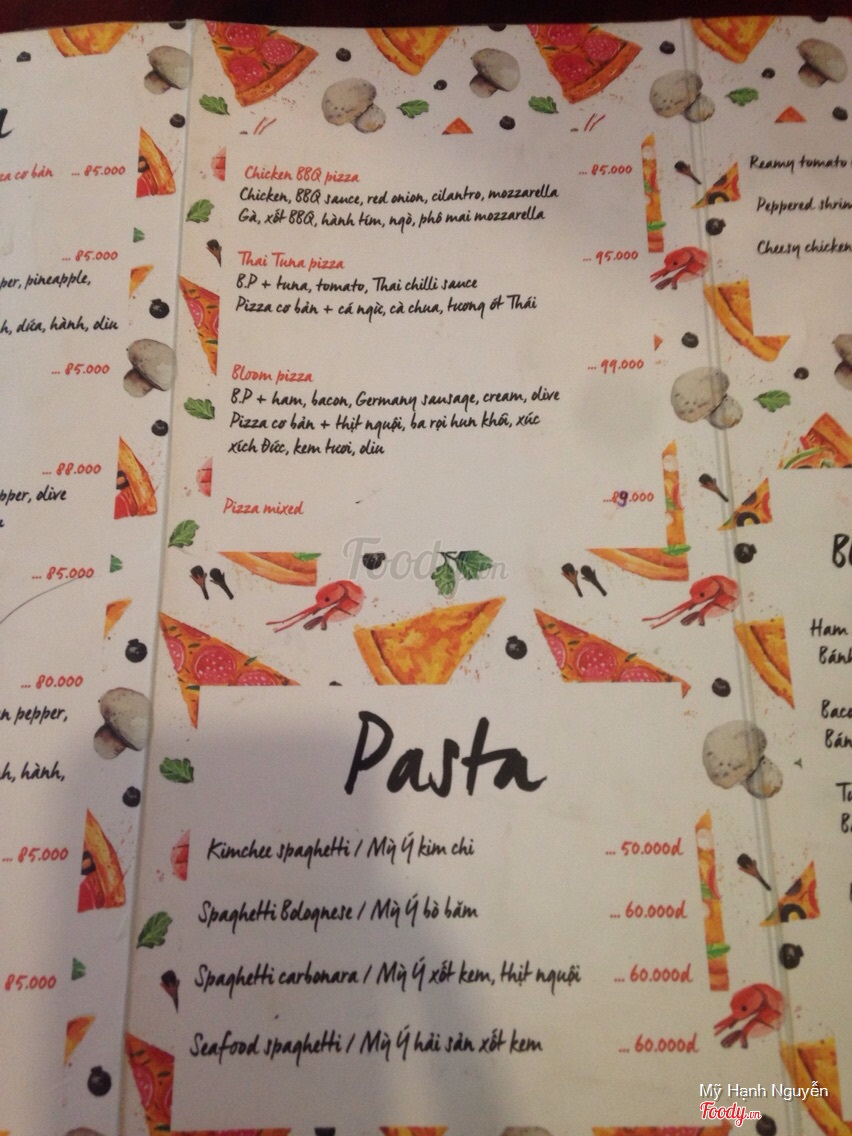 za cơ bản ... 85.000
... 85.000
per, pineapple,
h, dứa, hành, oliu
... 85.000
... 88.000
pper, olive
... 85.000
... 80.000
en pepper,
h, hành,
... 85.000
85.000
Chicken BBQ pizza ... 85.000
Chicken, BBQ sauce, red onion, cilantro, mozzarella
Gà, xốt BBQ, hành tím, ngò, phô mai mozzarella
Thai Tuna pizza ... 95.000
B.P + tuna, tomato, Thai chilli sauce
Pizza cơ bản + cá ngừ, cà chua, tương ớt Thái
Bloom pizza ... 99.000
B.P + ham, bacon, Germany sausage, cream, olive
Pizza cơ bản + thịt nguội, ba rọi hun khói, xúc
xích Đức, kem tươi, oliu
Pizza mixed ...89.000
Foody.vn
Pasta
Kimchee spaghetti / Mỳ Ý kim chi ... 50.000đ
Spaghetti Bolognese / Mỳ Ý bò băm ... 60.000đ
Spaghetti carbonara / Mỳ Ý xốt kem, thịt nguội ... 60.000đ
Seafood spaghetti / Mỳ Ý hải sản xốt kem ... 60.000đ
Reamy tomato
Peppered shrim
Cheesy chicken
Ham
Bánh
Baco
Bán
Mỹ Hạnh Nguyễn
Foody.vn